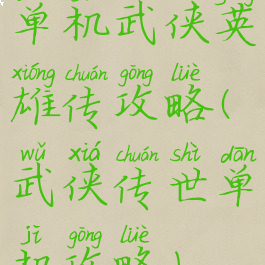 单机武侠英
xióng chuán gōng lüè
雄传攻略(
wǔ xiá chuán shì dān
武侠传世单
jī gōng lüè
机攻略)